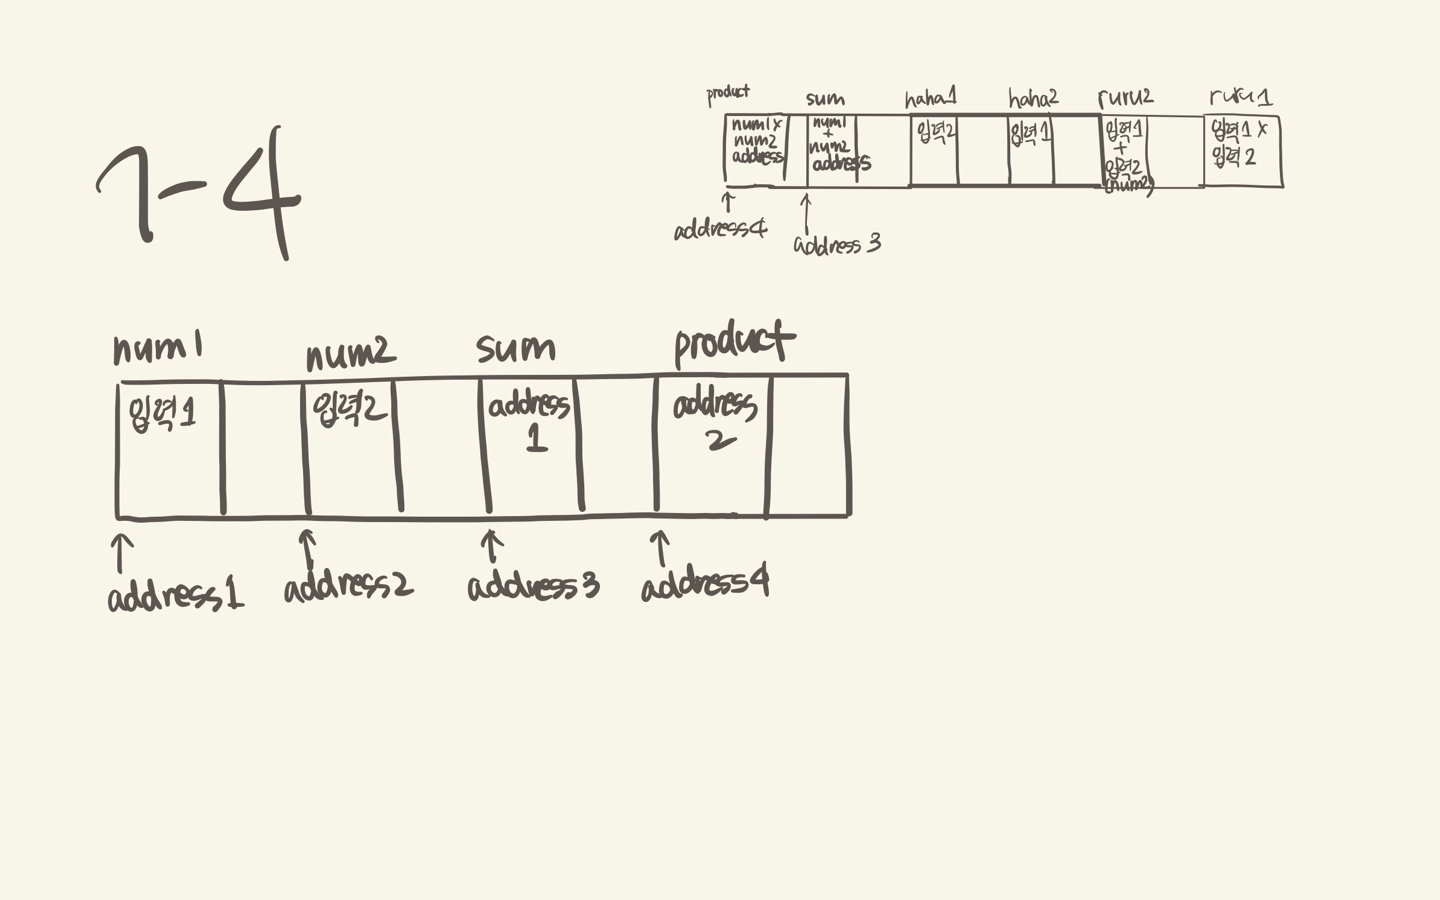 1-4
product sum haha1 haha2 ruru2 ruru1
num1 x
num2
address
num1
+
num2
address
입력2
입력1
입력1
+
입력2
(num2)
입력1 x
입력2
address4
address 3
num1 num2 sum product
입력1
입력2
address
1
address
2
address1 address2 address3 address4